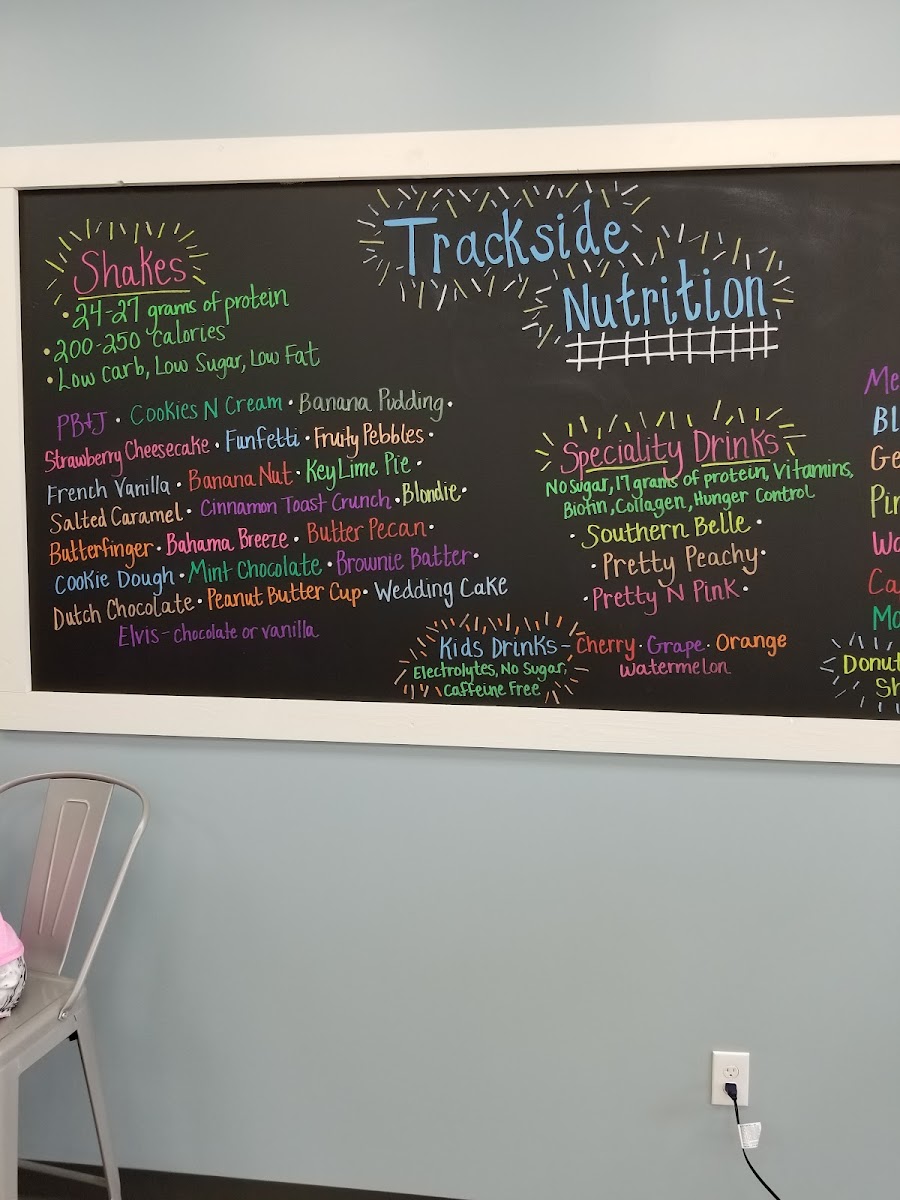 Trackside
Nutrition
Shakes
• 24-27 grams of protein
• 200-250 calories
• Low carb, Low Sugar, Low Fat
PB+J • Cookies N Cream • Banana Pudding •
Strawberry Cheesecake • Funfetti • Fruity Pebbles •
French Vanilla • Banana Nut • Key Lime Pie •
Salted Caramel • Cinnamon Toast Crunch • Blondie •
Butterfinger • Bahama Breeze • Butter Pecan •
Cookie Dough • Mint Chocolate • Brownie Batter •
Dutch Chocolate • Peanut Butter Cup • Wedding Cake
Elvis - chocolate or vanilla
Speciality Drinks
No Sugar, 17 grams of protein, Vitamins,
Biotin, Collagen, Hunger Control
• Southern Belle •
• Pretty Peachy •
• Pretty N Pink •
Kids Drinks - Cherry • Grape • Orange
Watermelon
Electrolytes, No Sugar,
Caffeine Free
Me
Bl
Ge
Pin
Wa
Ca
Mo
Donut
Sh